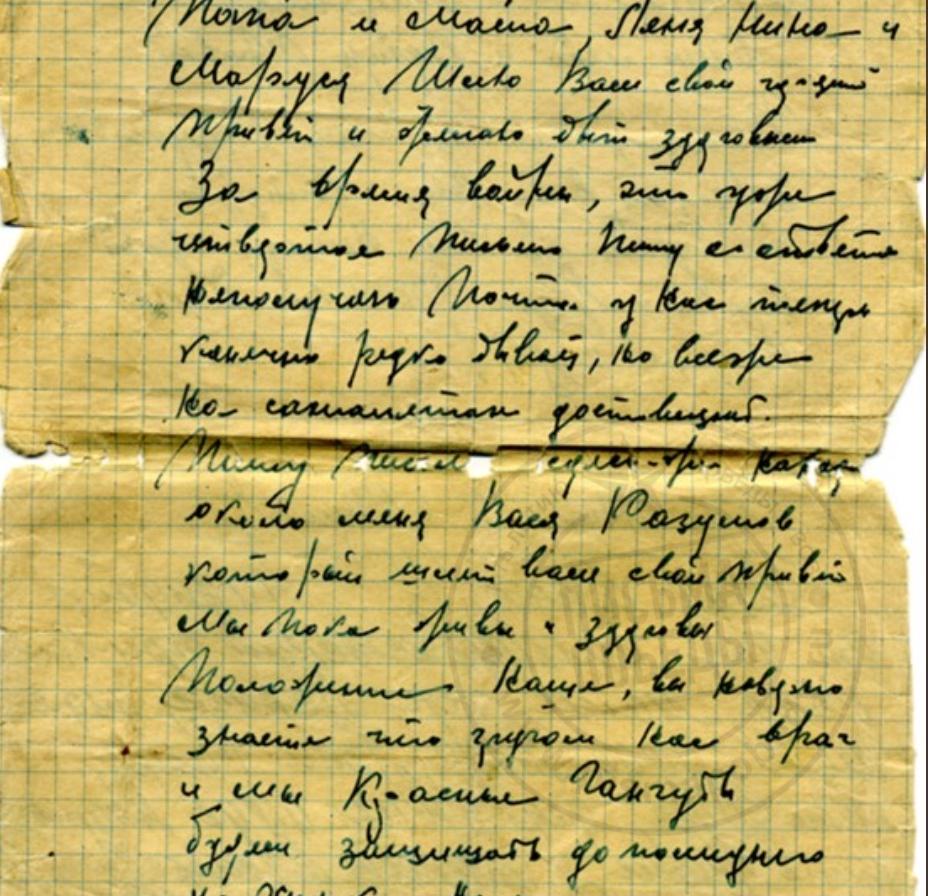 Папа и Мама, Леня Нина и
Маруся Шлю Вам свой
привет и желаю быть здоровым
За время войны, это уже
четвертое письмо пишу а ответа
неполучаю Почта у нас теперь
конечно редко бывает, но все же
на самолетах доставщают.
Пишу письмо
около меня Вася Разумов
который шлет вам свой привет
Мы пока живы и здоровы
Положение наше, вы наверно
знаете что кругом нас враг
и мы Красный Гангут
будем защищать до последнего